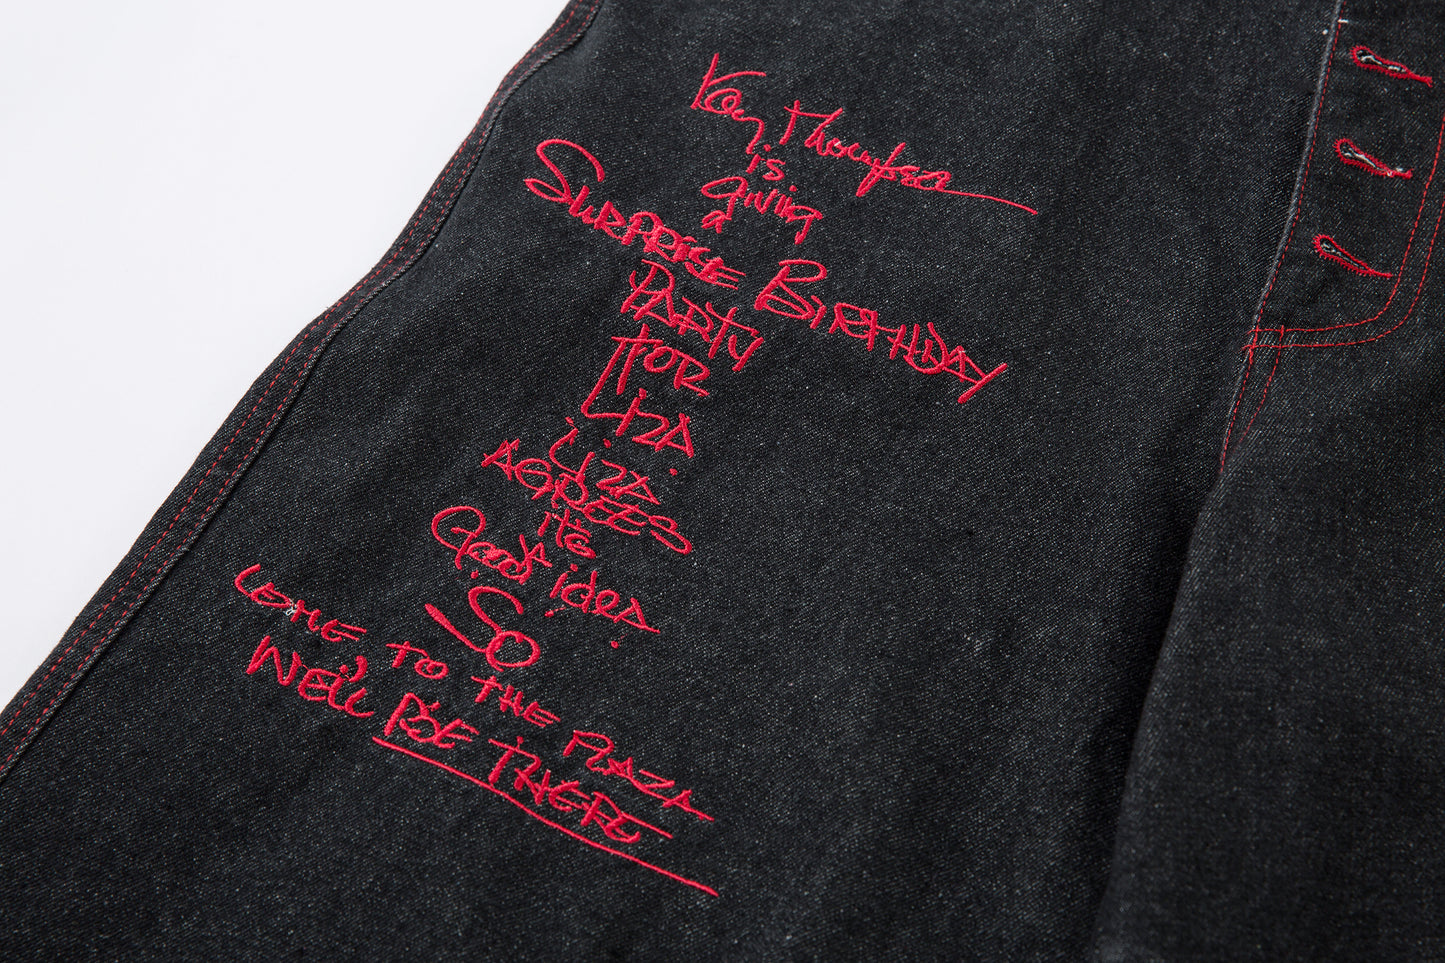 Kay Thompson
is
giving
a
SURPRISE BIRTHDAY
PARTY
FOR
LIZA.
LIZA
AGREES
it's
A
Good idea.
SO
COME TO THE PLAZA
WE'LL BE THERE